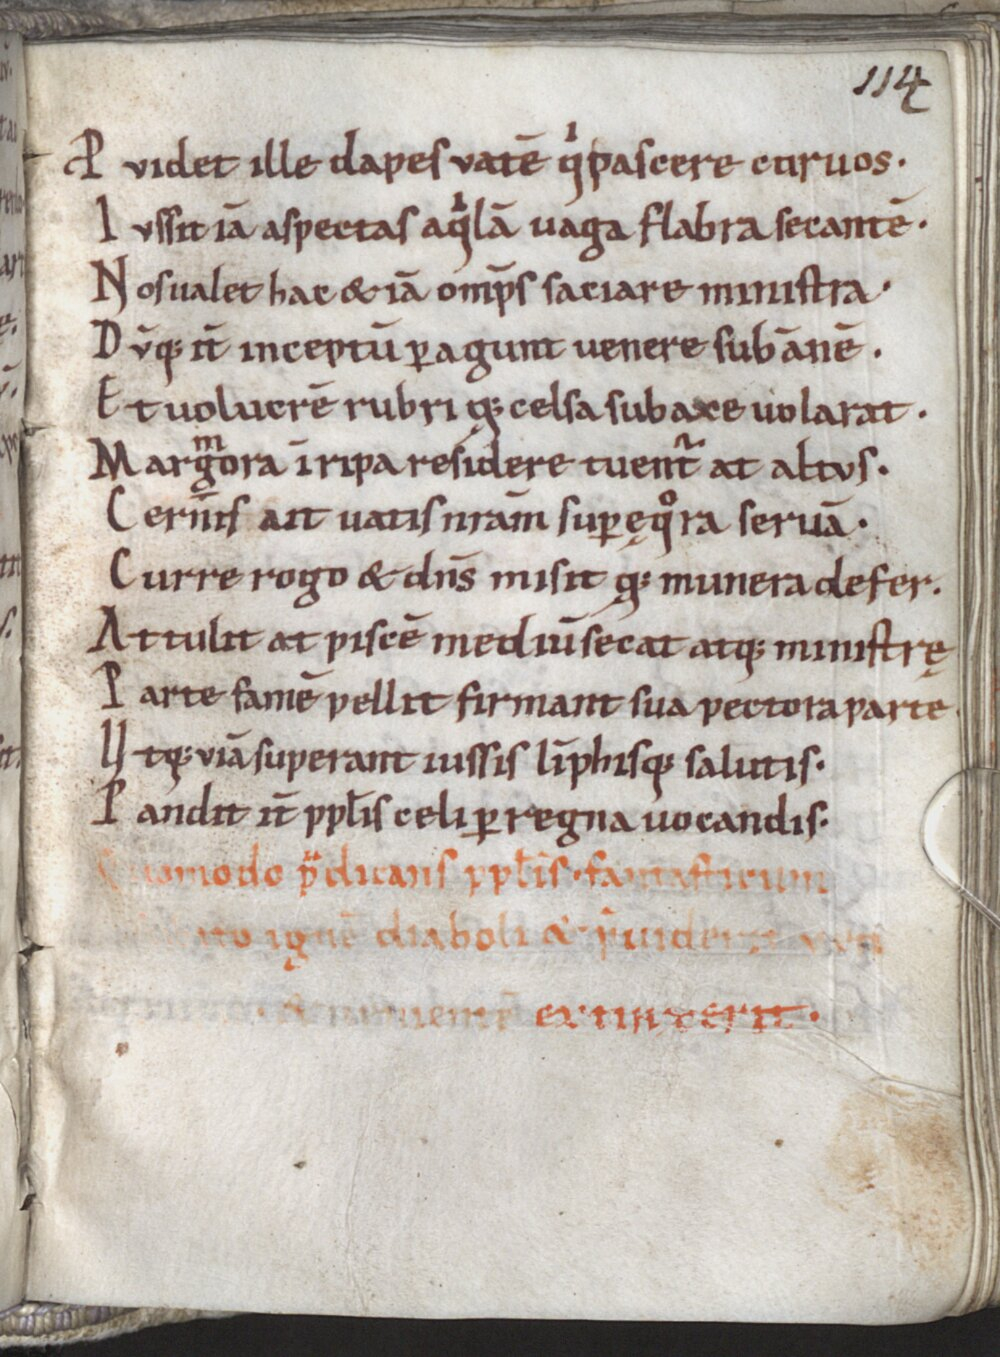 114
P videt ille dapes vatē qͥ pascere curuos.
I vssit iā aspectas aqͥlā uaga flabra secantē.
N os ualet hac & iā omp̄s saciare ministra.
D v̄q; it̄ inceptū ꝑagunt uenere sub ānē.
E t uolucrē rubri q; celsa sub axe uolarat.
M argͫora ī ripa residere tuent᷑ at altvs.
C ern̄it̄s ait uatis nrā̄m suꝑ ęqͦra seruā.
C urre rogo & dn̄s misit q; munera defer.
A ttulit at piscē mediū secat atq; ministrę
P arte famē pellit firmant sua pectora parte
U tq; viā superant iussis līphisq; salutis.
P andit it̄ ppl̄is celi ꝑ regna uocandis.
Quomodo p̄dicans ppl̄is. fantasticum
ignē diaboli &
extinxerit.